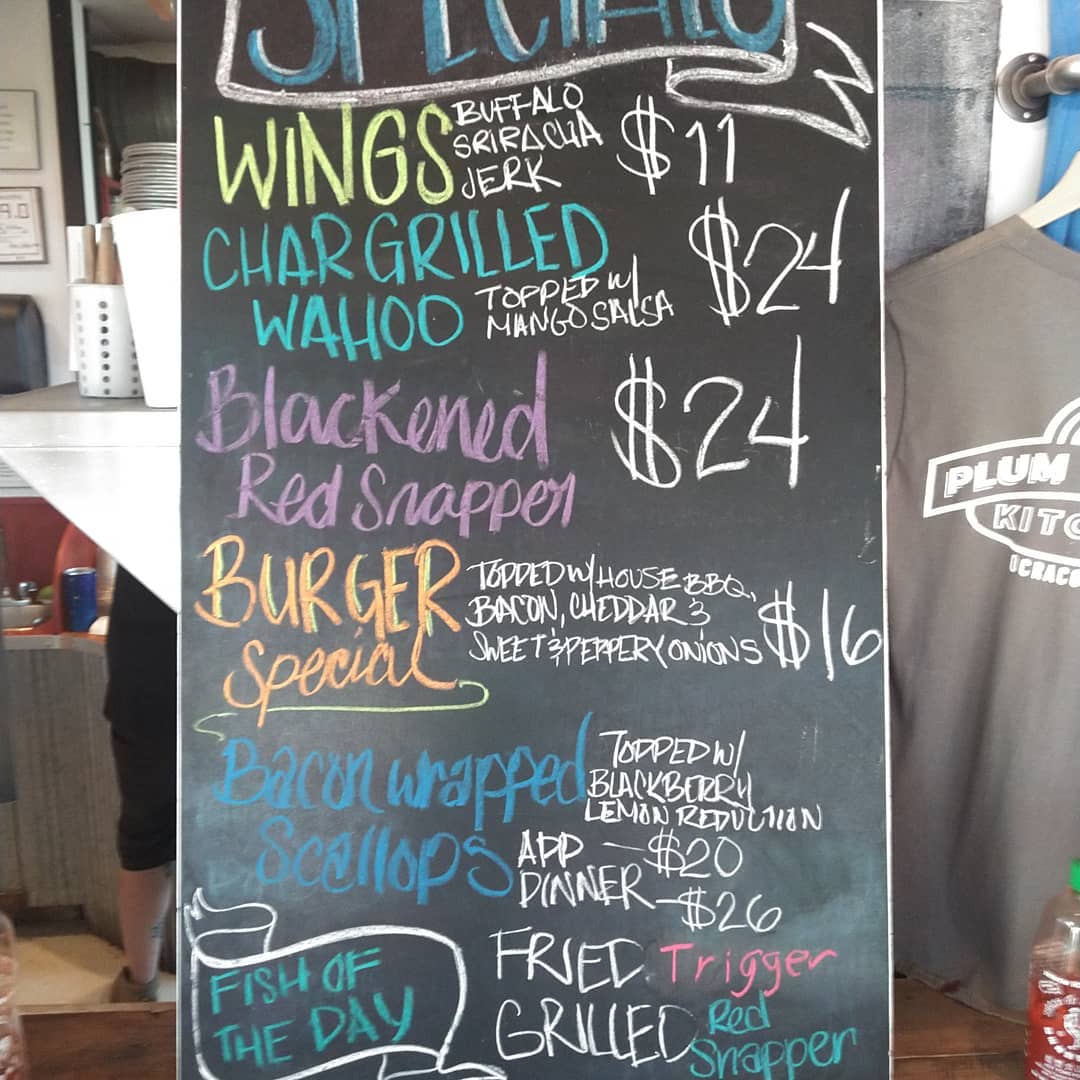 SPECIALS
WINGS BUFFALO SRIRACHA JERK $11
CHAR GRILLED WAHOO TOPPED W/ MANGO SALSA $24
Blackened Red Snapper $24
BURGER Special TOPPED W/ HOUSE BBQ, BACON, CHEDDAR & SWEET & PEPPERY ONIONS $16
Bacon wrapped Scallops TOPPED W/ BLACKBERRY LEMON REDUCTION
APP — $20
DINNER — $26
FISH OF THE DAY
FRIED Trigger
GRILLED Red Snapper
PLUM
KITC
OCRACO
9.0